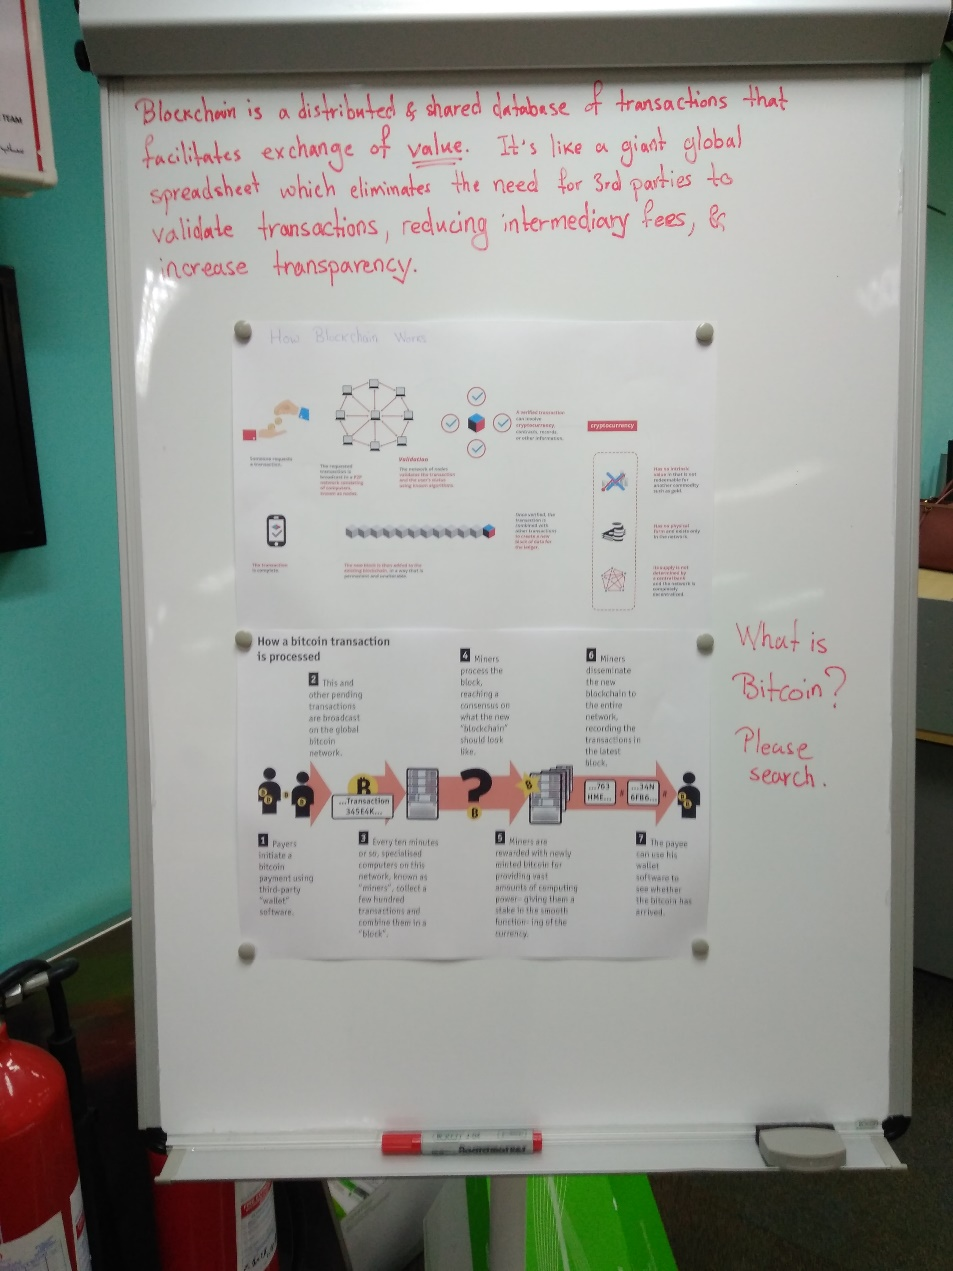 TEAM
Blockchain is a distributed & shared database of transactions that
facilitates exchange of value. It's like a giant global
spreadsheet which eliminates the need for 3rd parties to
validate transactions, reducing intermediary fees, &
increase transparency.
How Blockchain Works
Someone requests
a transaction.
The requested
transaction is
broadcast to a P2P
network consisting
of computers,
known as nodes.
Validation
The network of nodes
validates the transaction
and the user's status
using known algorithms.
A verified transaction
can involve
cryptocurrency,
contracts, records,
or other information.
cryptocurrency
Has no intrinsic
value in that it is not
redeemable for
another commodity
such as gold.
Has no physical
form and exists only
in the network.
Its supply is not
determined by
a central bank
and the network is
completely
decentralized.
Once verified, the
transaction is
combined with
other transactions
to create a new
block of data for
the ledger.
The new block is then added to the
existing blockchain, in a way that is
permanent and unalterable.
The transaction
is complete.
How a bitcoin transaction
is processed
1 Payers
initiate a
bitcoin
payment using
third-party
"wallet"
software.
2 This and
other pending
transactions
are broadcast
on the global
bitcoin
network.
3 Every ten minutes
or so, specialised
computers on this
network, known as
"miners", collect a
few hundred
transactions and
combine them in a
"block".
4 Miners
process the
block,
reaching a
consensus on
what the new
"blockchain"
should look
like.
5 Miners are
rewarded with newly
minted bitcoin for
providing vast
amounts of computing
power- giving them a
stake in the smooth
function- ing of the
currency.
6 Miners
disseminate
the new
blockchain to
the entire
network,
recording the
transactions in
the latest
block.
7 The payee
can use his
wallet
software to
see whether
the bitcoin has
arrived.
...Transaction
345E4K...
...763
HME...
#
...34N
6FB6...
#
What is
Bitcoin?
Please
search.